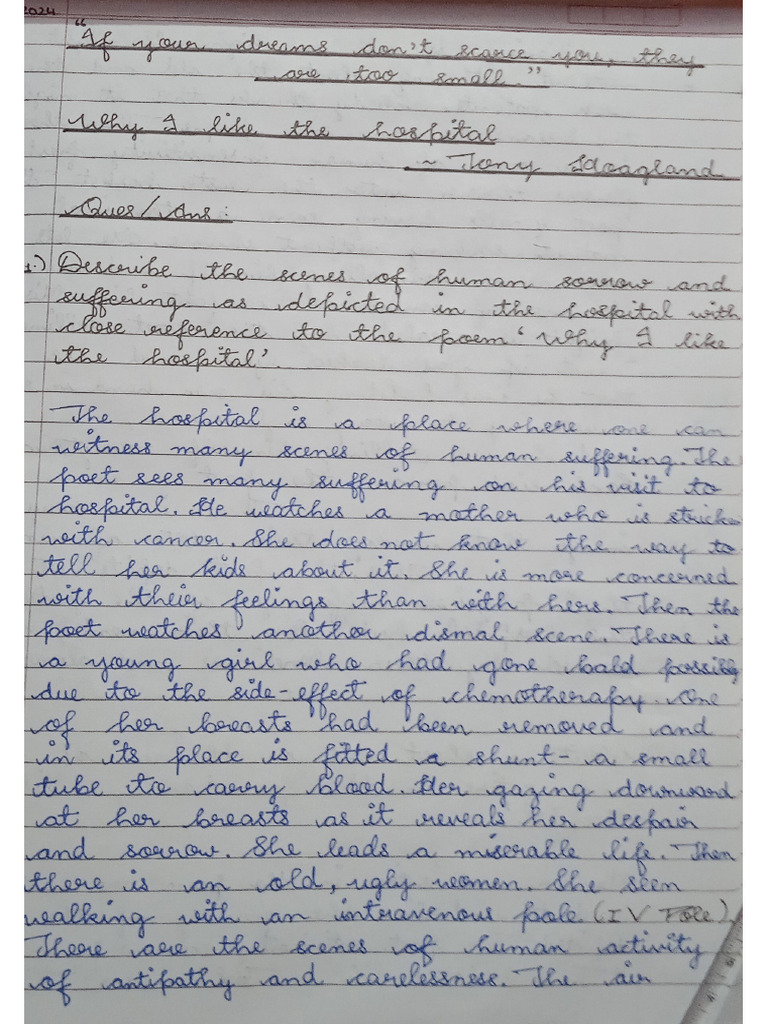 2024
"If your dreams don't scarce you, they
are too small."
Why I like the hospital
~ Tony Hoagland
Ques/Ans:
1.) Describe the scenes of human sorrow and
suffering as depicted in the hospital with
close reference to the poem 'Why I like
the hospital'.
The hospital is a place where one can
witness many scenes of human suffering. The
poet sees many suffering on his visit to
hospital. He watches a mother who is stricke
with cancer. She does not know the way to
tell her kids about it. She is more concerned
with their feelings than with hers. Then the
poet watches another dismal scene. There is
a young girl who had gone bald possibly
due to the side-effect of chemotherapy. One
of her breasts had been removed and
in its place is fitted a shunt - a small
tube to carry blood. Her gazing downward
at her breasts as it reveals her despair
and sorrow. She leads a miserable life. Then
there is an old, ugly women. She seen
walking with an intravenous pole (IV Pole)
There are the scenes of human activity
of antipathy and carelessness. The air